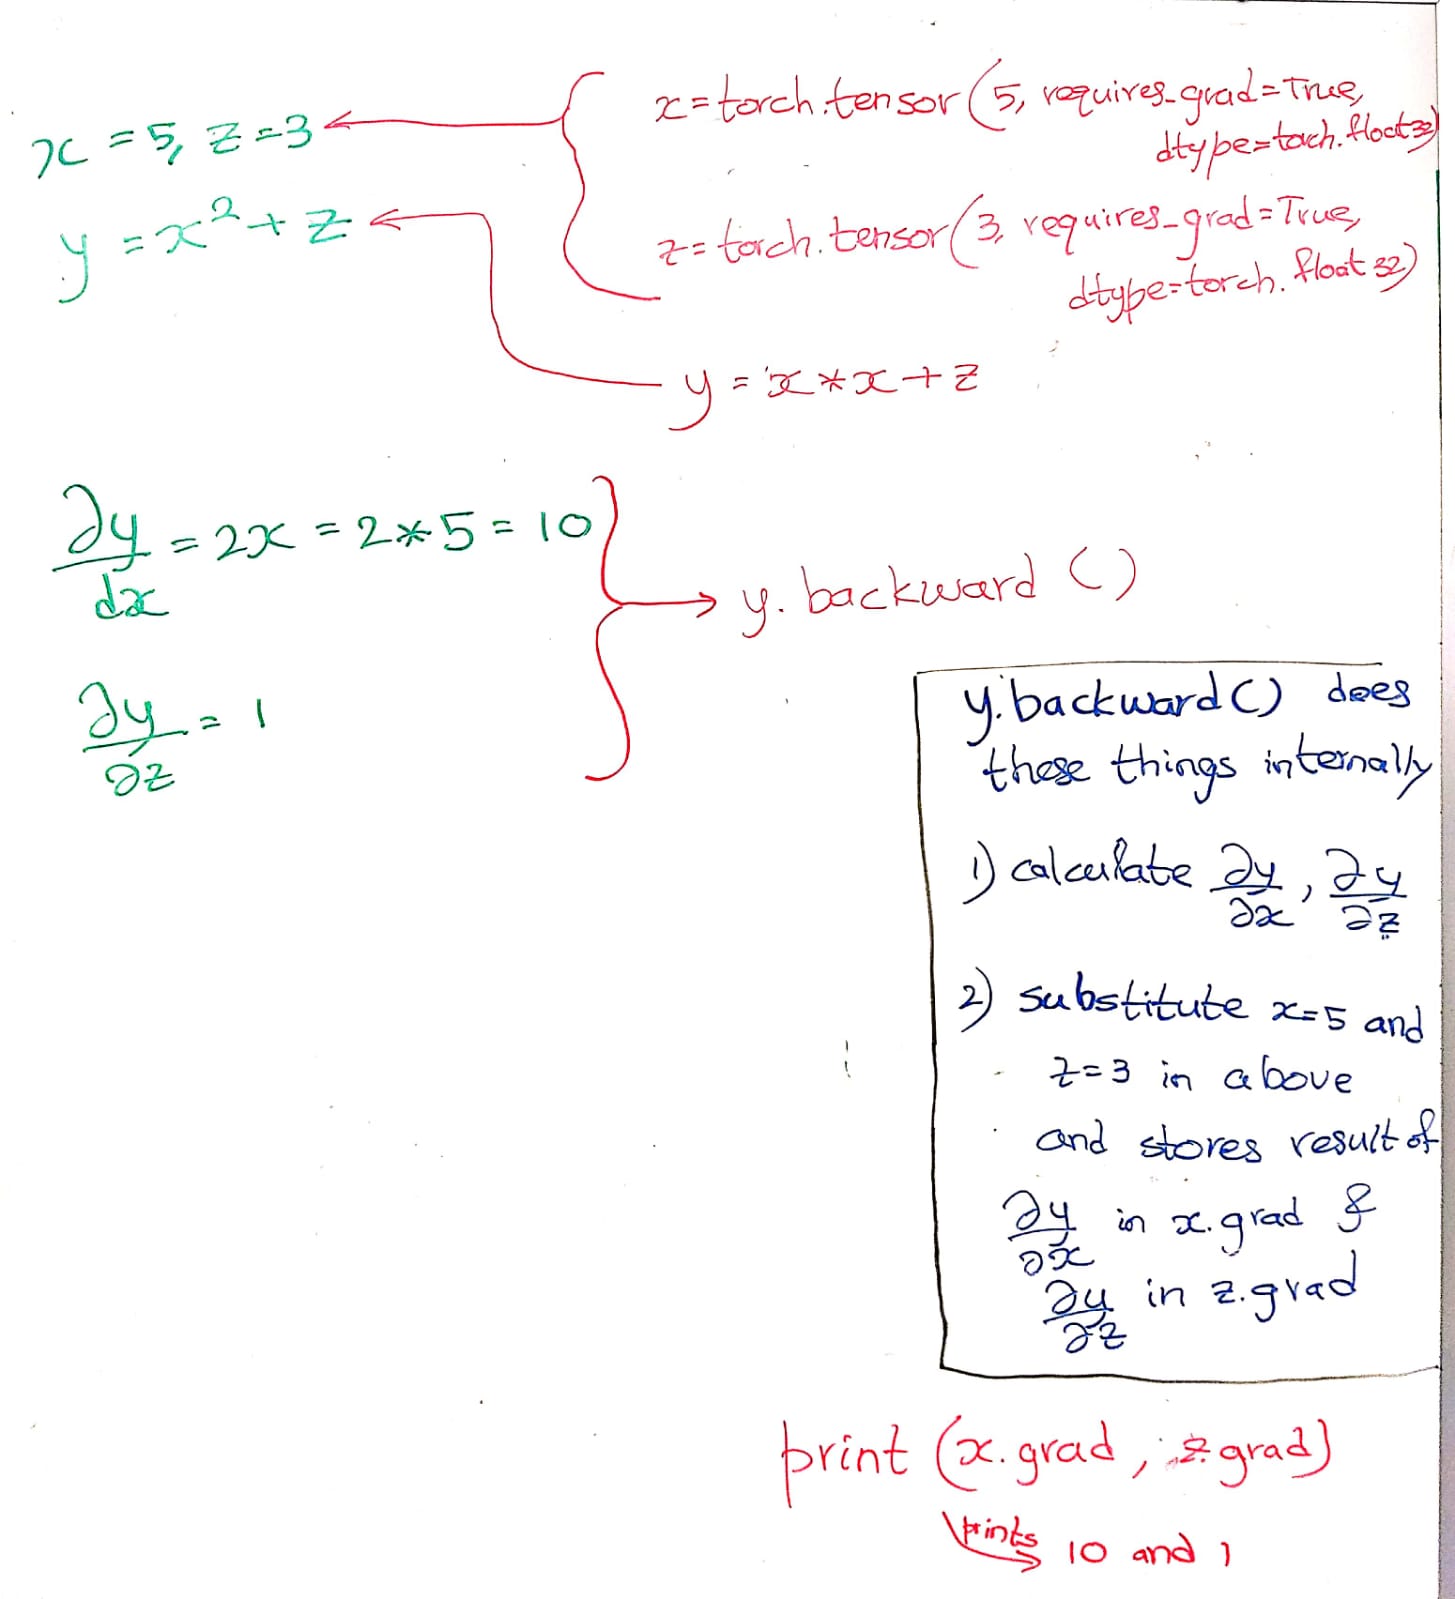 x = 5, z = 3
y = x² + z
x = torch.tensor(5, requires_grad=True,
dtype=torch.float32)
z = torch.tensor(3, requires_grad=True,
dtype=torch.float32)
y = x * x + z
∂y/dx = 2x = 2*5 = 10
∂y/∂z = 1
y. backward ()
y. backward () does
these things internally
1) calculate ∂y/∂x, ∂y/∂z
2) substitute x=5 and
z=3 in above
and stores result of
∂y/∂x in x.grad &
∂y/∂z in z.grad
print (x.grad, z.grad)
prints 10 and 1